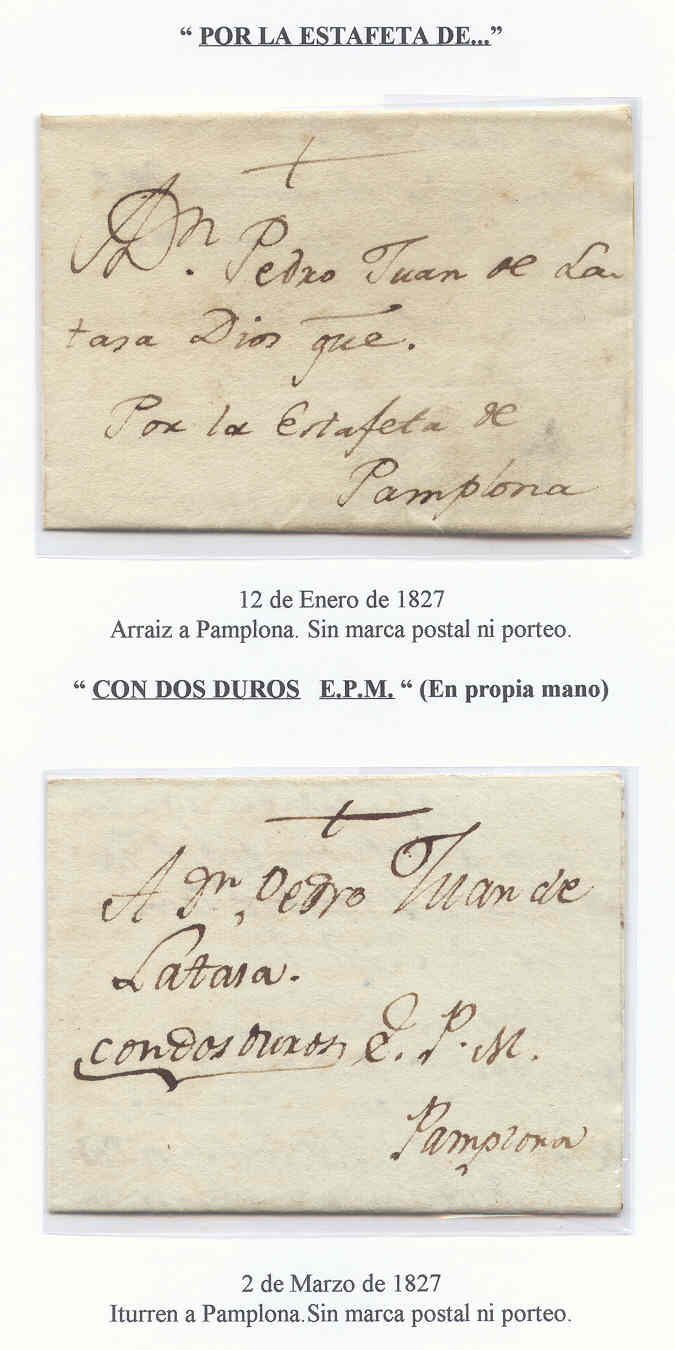 “ POR LA ESTAFETA DE...”
A Dn. Pedro Juan de La-
tasa Dios gue.
Por la Estafeta de
Pamplona
12 de Enero de 1827
Arraiz a Pamplona. Sin marca postal ni porteo.
“ CON DOS DUROS E.P.M. “ (En propia mano)
A Dn. Pedro Juan de
Latasa.
con dos duros E. P. M.
Pamplona
2 de Marzo de 1827
Iturren a Pamplona.Sin marca postal ni porteo.